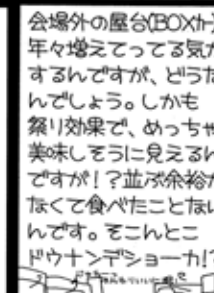 会場外の屋台(BOXカ
年々増えてってる気が
するんですが、どうな
んでしょう。しかも
祭り効果で、めっちゃ
美味しそうに見えるん
ですが!?並ぶ余裕が
なくて食べたことない
んです。そこんとこ
ドウナンデショーカ!?